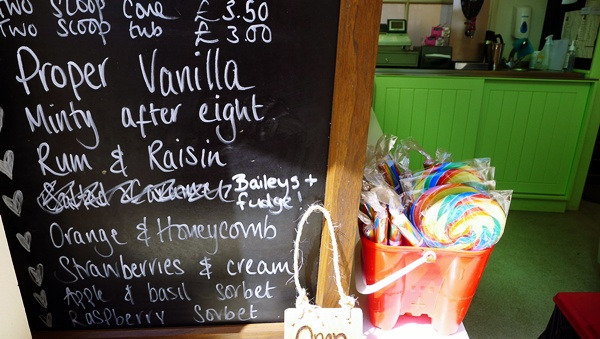 Two Scoop Cone £3.50
Two Scoop tub £3.00
Proper Vanilla
Minty after eight
Rum & Raisin
Baileys +
fudge!
Orange & Honeycomb
Strawberries & cream
Apple & basil sorbet
Raspberry Sorbet
Open